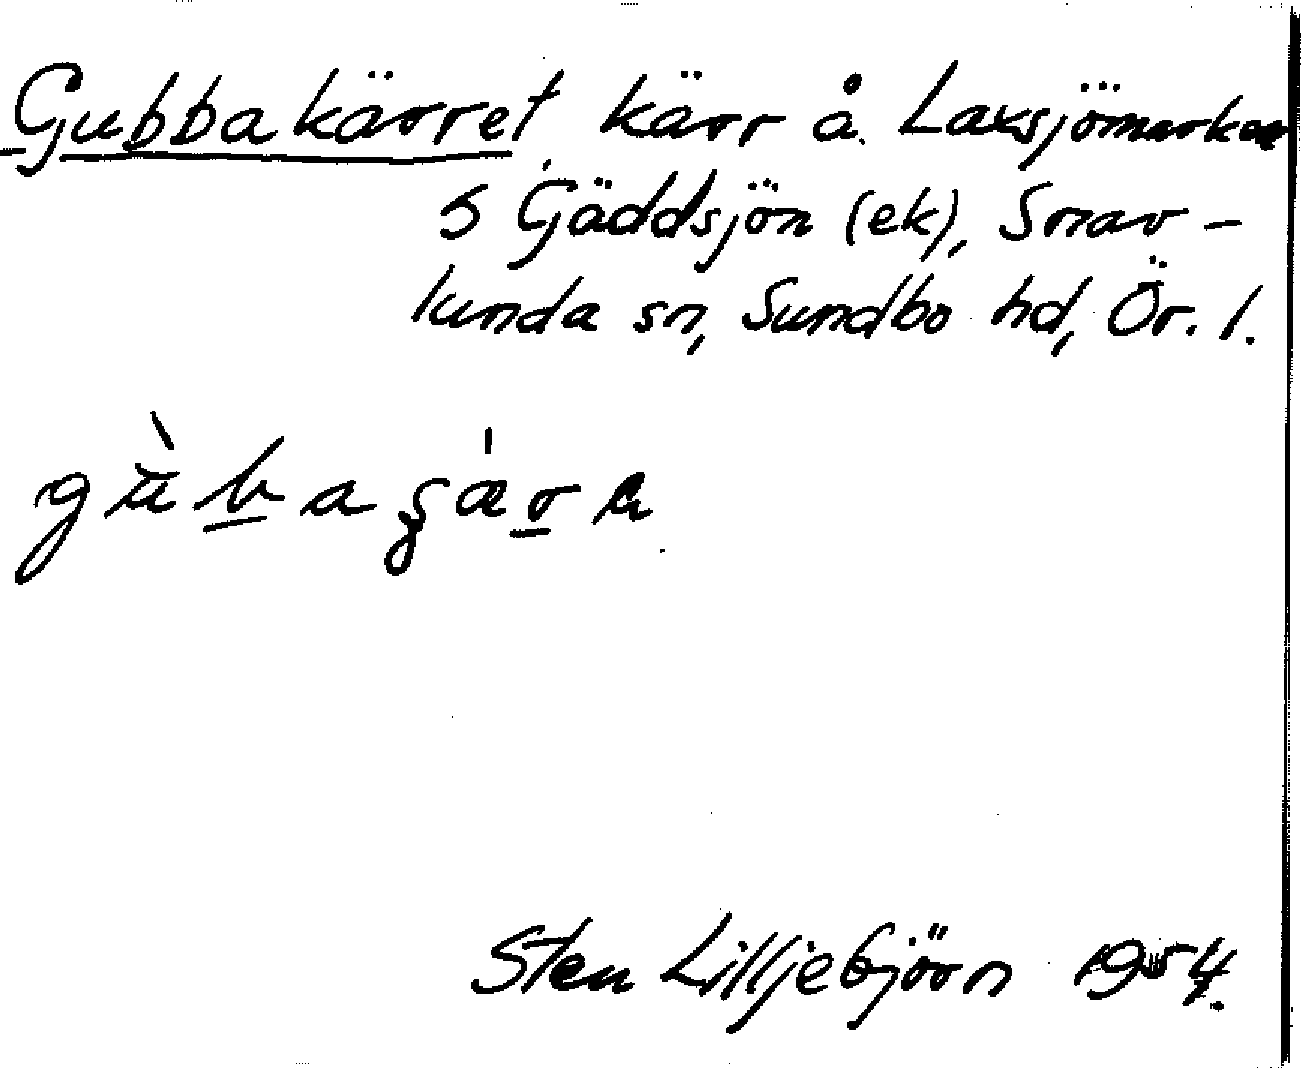 Gubbakärret kärr å Laxsjömarken
S Gäddsjön (ek), Snav-
lunda sn, Sundbo hd, Ör. l.
Sten Lilljebjörn 1954.